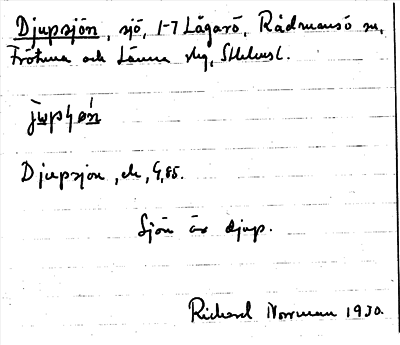 Djupsjön, sjö, 1-7 Lågarö, Rådmansö sn,
Frötuna och Länna skg, Sthlms l.
Djupsjön, ek, G, 85.
Sjön är djup.
Richard Norrman 1930.